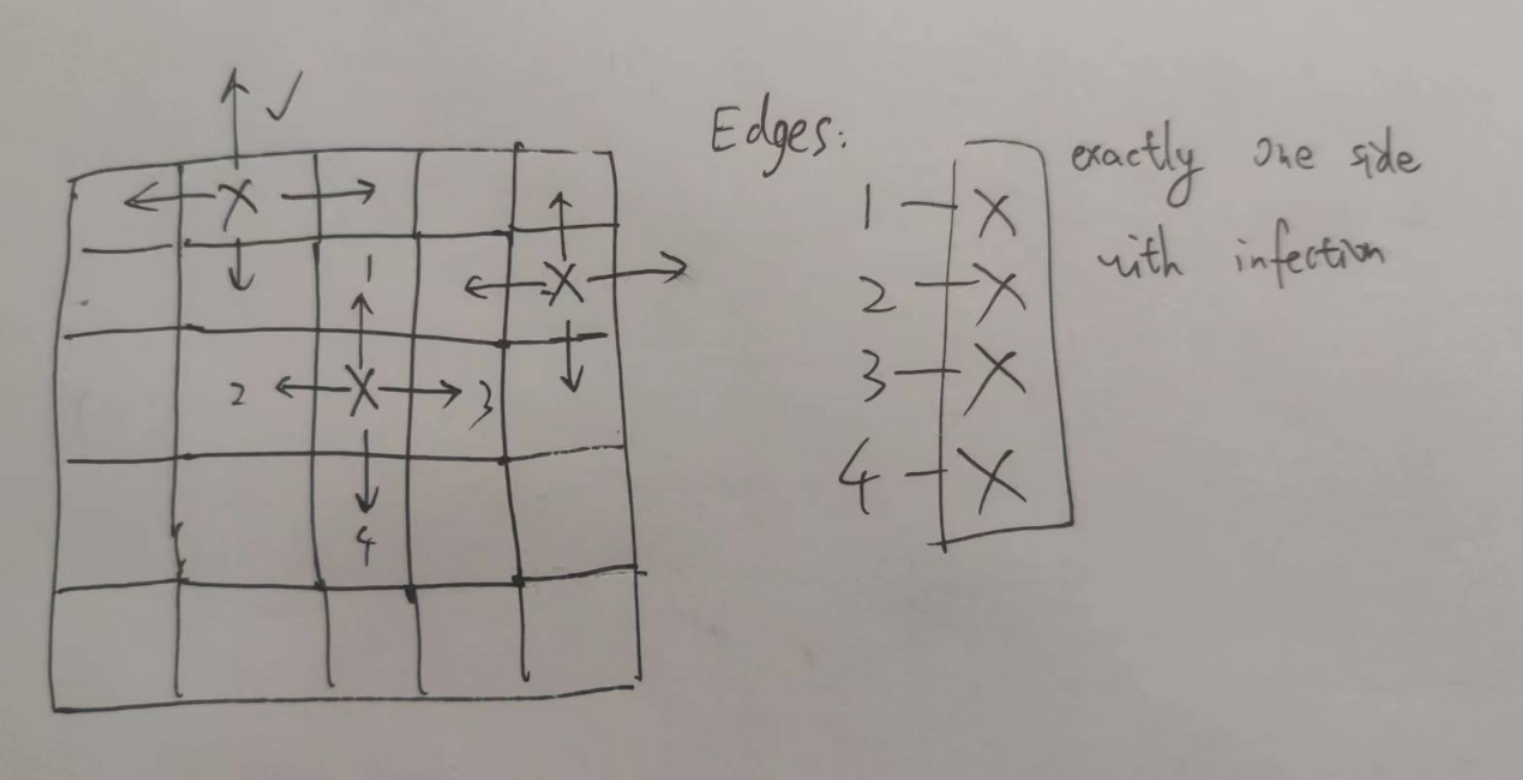 ✓
X
X
1
2 X 3
4
Edges:
1 — X
2 — X
3 — X
4 — X
exactly one side
with infection